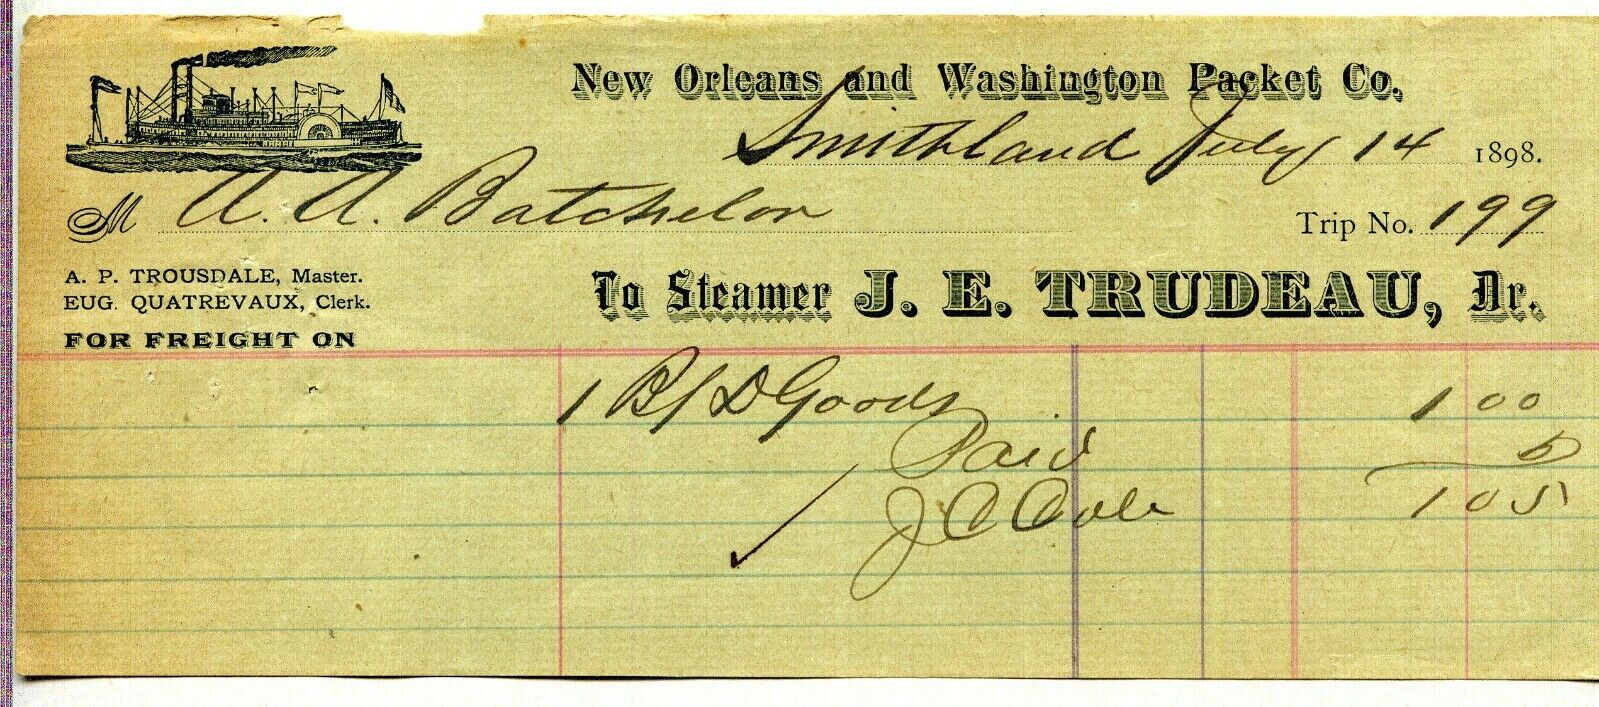 New Orleans and Washington Packet Co.
Smithland July 14 1898.
M A. A. Batchelor
Trip No. 199
A. P. TROUSDALE, Master.
EUG. QUATREVAUX, Clerk.
FOR FREIGHT ON
To Steamer J. E. TRUDEAU, Dr.
1 Bx D Goods 1 00
Paid 5
J C Cole 1 05